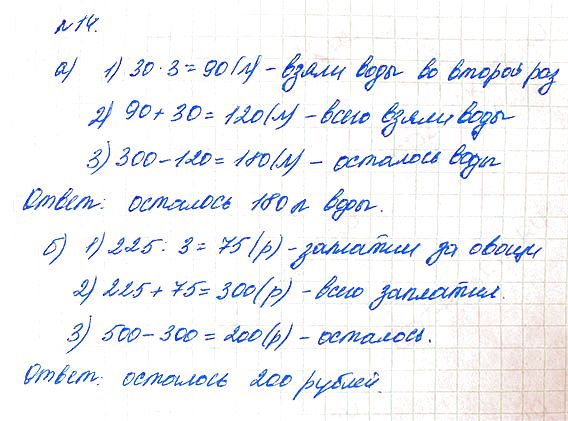 № 14.
а) 1) 30 · 3 = 90 (л) – взяли воды во второй раз
2) 90 + 30 = 120 (л) – всего взяли воды
3) 300 – 120 = 180 (л) – осталось воды
Ответ: осталось 180 л воды.
б) 1) 225 : 3 = 75 (р) – заплатили за овощи
2) 225 + 75 = 300 (р) – всего заплатил.
3) 500 – 300 = 200 (р) – осталось.
Ответ: осталось 200 рублей.